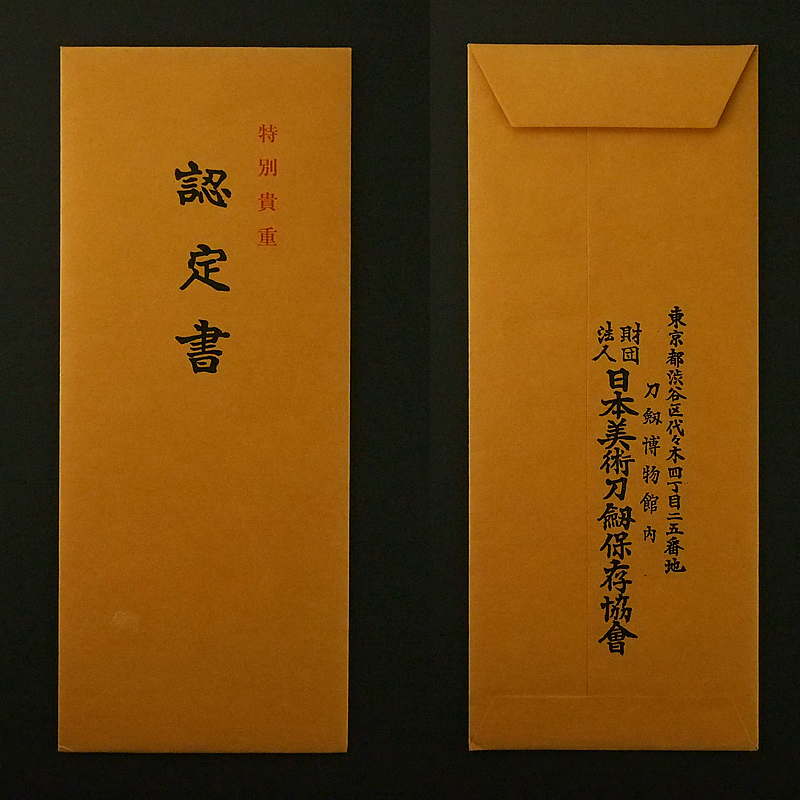 特別貴重
認定書
東京都渋谷区代々木四丁目二五番地
刀劔博物館內
財団法人日本美術刀劔保存協會